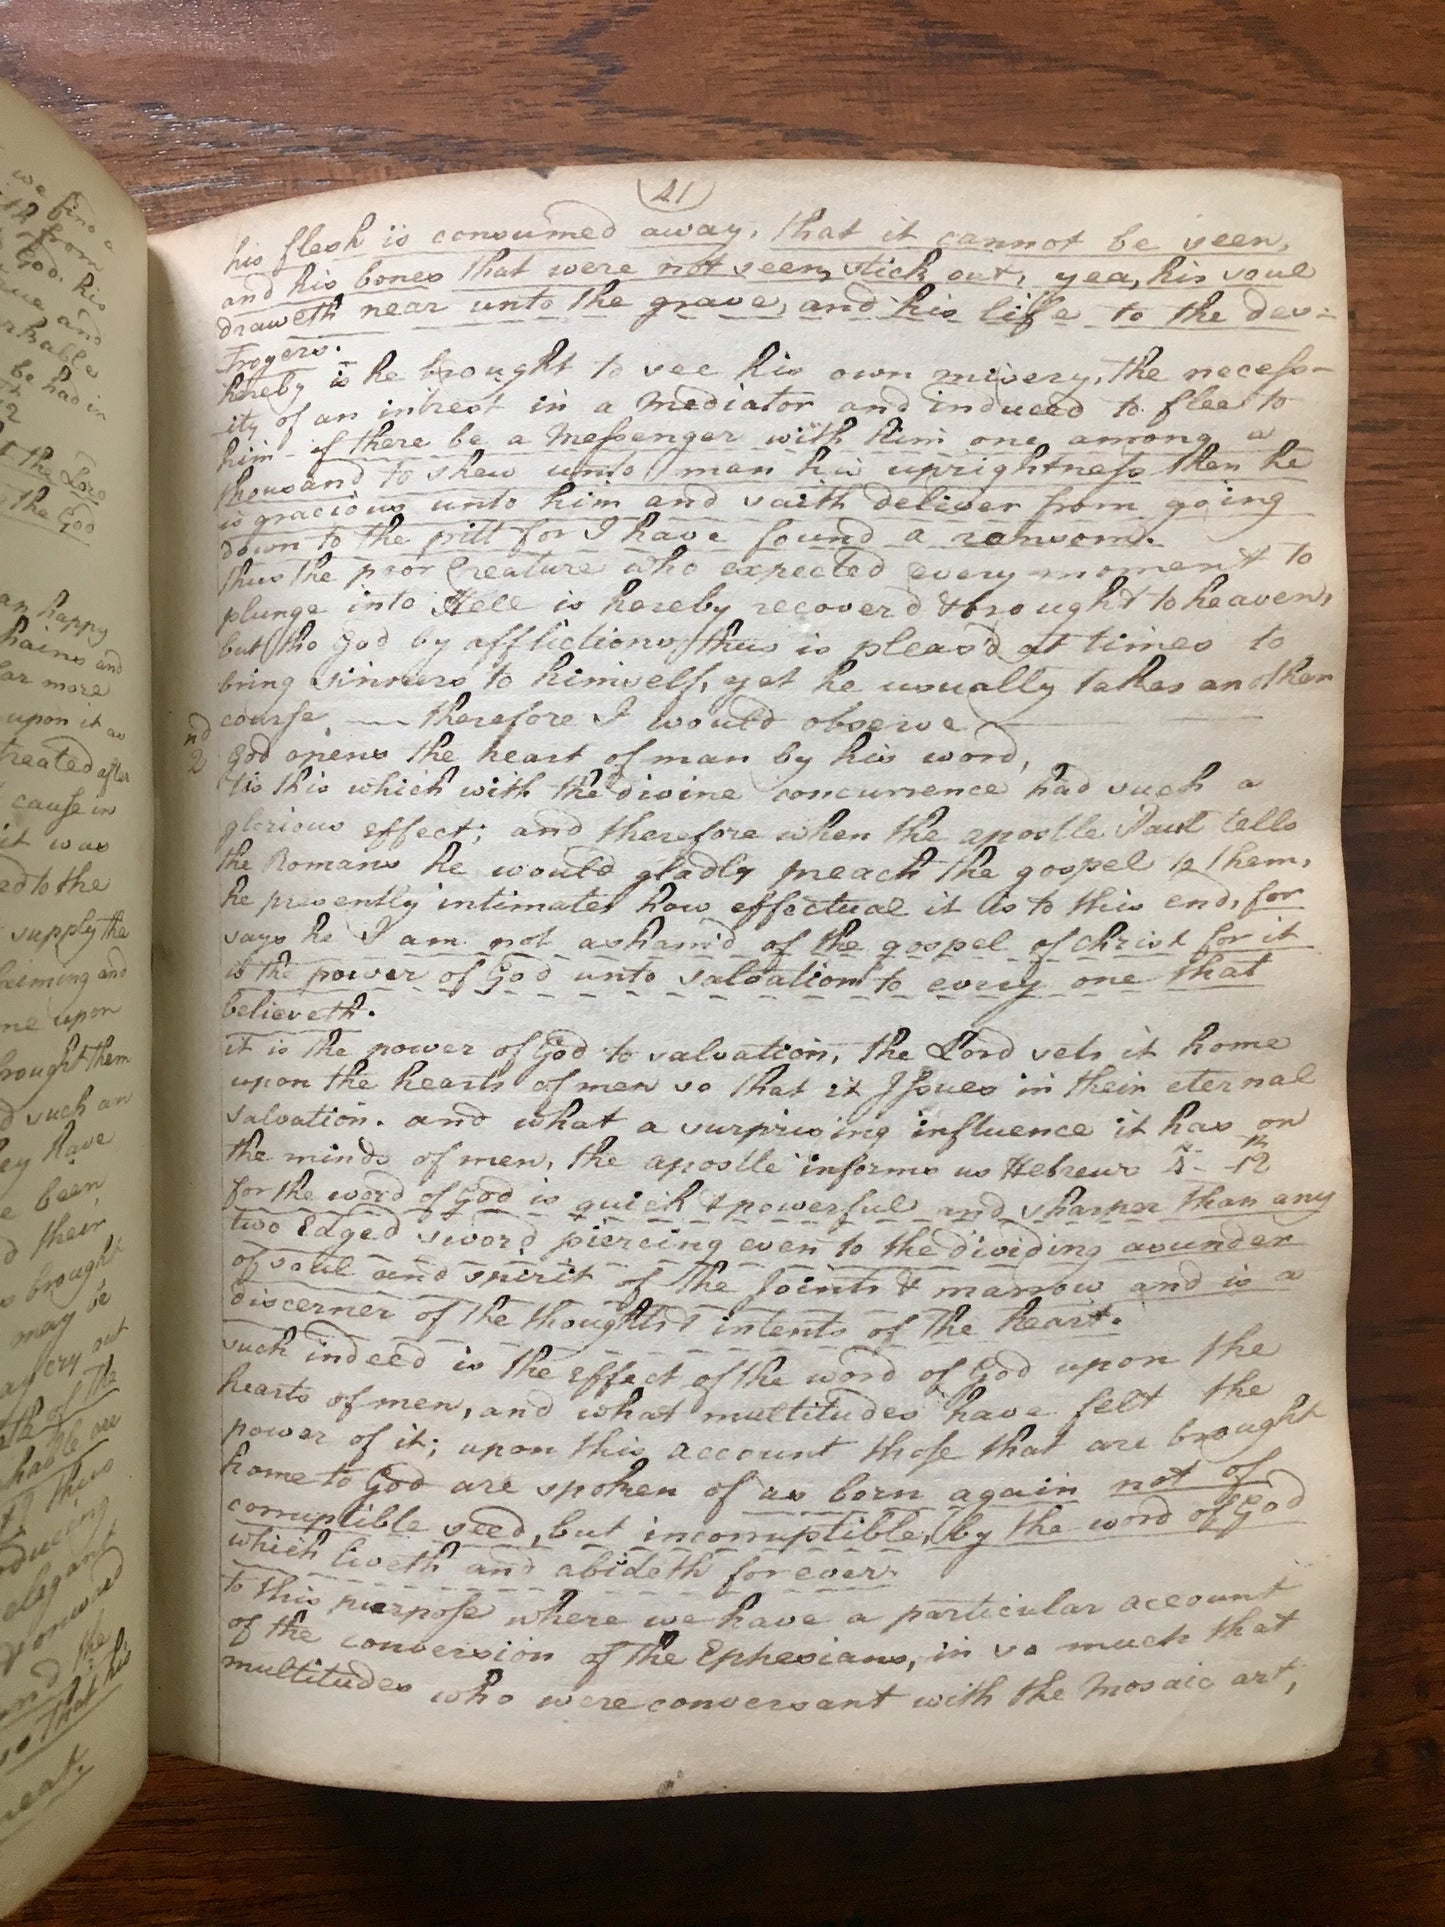 we find a
from
God. his
and
be had in
the Lord
the God
an happy
chains and
far more
upon it as
treated after
cause in
it was
ed to the
supply the
claiming and
me upon
brought them
d such an
they have
e been
d their
s brought
may be
may cry out
of the
this
elegant
the
so that his
41
his flesh is consumed away, that it cannot be seen,
and his bones that were not seen, stick out, yea, his soul
draweth near unto the grave, and his life to the des-
troyers.
hereby is he brought to see his own misery, the necess-
ity of an intrest in a Mediator and induced to flee to
him - if there be a Messenger with him one among a
thousand to shew unto man his uprightness then he
is gracious unto him and saith deliver from going
down to the pitt for I have found a ransom.
thus the poor Creature who expected every moment to
plunge into Hell is hereby recover'd & brought to heaven,
but tho God by afflictions thus is pleas'd at times to
bring sinners to himself, yet he usually takes another
course —— therefore I would observe ——
2nd God opens the heart of man by his word,
'tis this which with the divine concurrence had such a
glorious effect; and therefore when the apostle Paul tells
the Romans he would gladly preach the gospel to them,
he presently intimates how effectual it is to this end, for
says he I am not asham'd of the gospel of christ for it
is the power of God unto salvation to every one that
believeth.
it is the power of God to salvation, the Lord sets it home
upon the hearts of men so that it Issues in their eternal
salvation. and what a surprising influence it has on
the minds of men, the apostle informs us Hebrews 4- 12th
for the word of God is quick & powerful and sharper than any
two Edged sword piercing even to the dividing asunder
of soul and spirit of the Joints & marrow and is a
discerner of the thoughts & intents of the heart.
such indeed is the Effect of the word of God upon the
hearts of men, and what multitudes have felt the
power of it; upon this account those that are brought
home to God are spoken of as born again not of
corruptible seed, but incorruptible, by the word of God
which liveth and abideth forever.
to this purpose where we have a particular account
of the conversion of the Ephesians, in so much that
multitudes who were conversant with the Mosaic art,